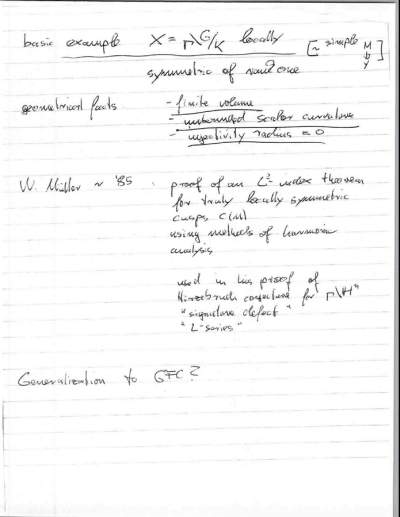 basic example X = Γ\G/K locally [~ simple M ↓ Y]
symmetric of rank one
geometrical facts - finite volume
- unbounded scalar curvature
- injectivity radius = 0
W. Müller ~ '85 . proof of an L²-index theorem
for truly locally symmetric
cusps, C(M)
using methods of harmonic
analysis
used in his proof of
Hirzebruch conjecture for Γ\Hⁿ
"signature defect"
"L-series"
Generalization to GFC?